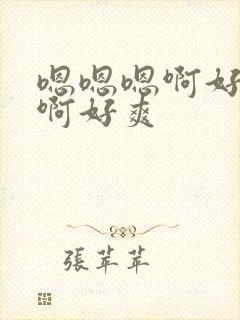 嗯嗯嗯啊好
啊好爽
張苹苹